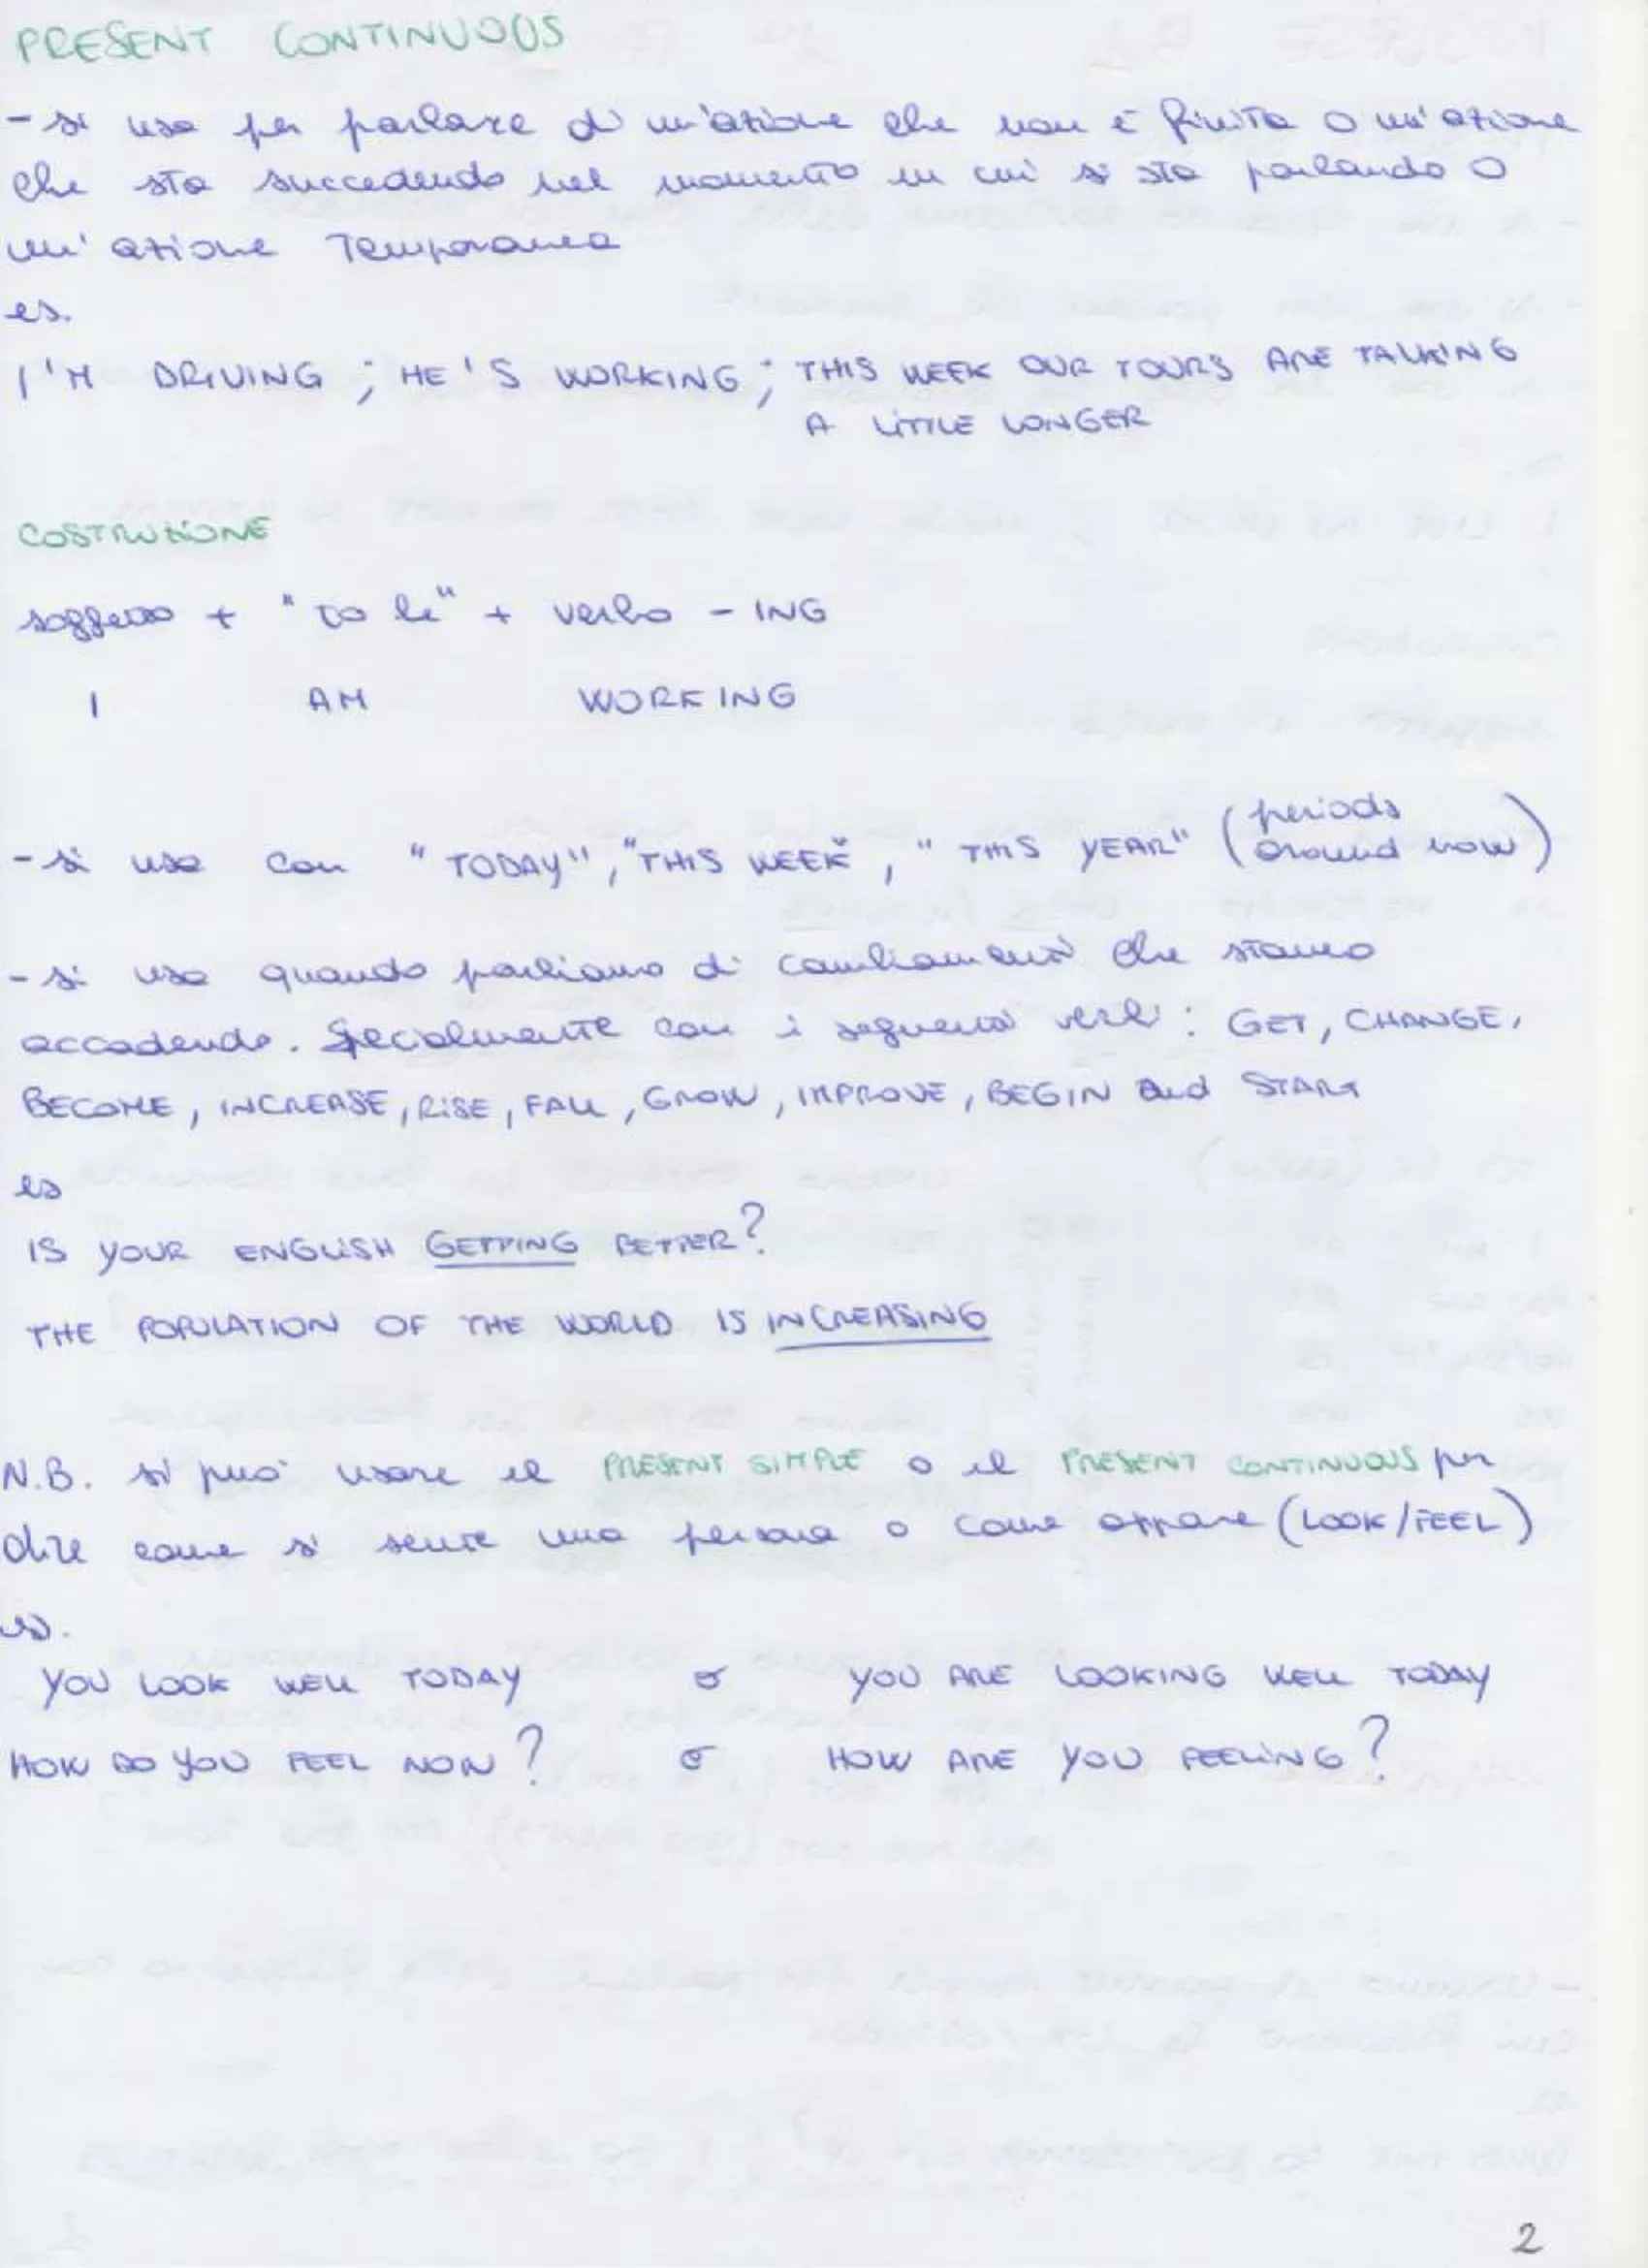 PRESENT CONTINUOUS
- si usa per parlare di un'azione che non è finita o un'azione
che sta succedendo nel momento in cui si sta parlando o
un'azione temporanea
es.
I'M DRIVING ; HE'S WORKING ; THIS WEEK OUR TOURS ARE TALKING
A LITTLE LONGER
COSTRUZIONE
soggetto + "to be" + verbo - ING
I AM WORKING
- si usa con "TODAY", "THIS WEEK", "THIS YEAR" (periods
around now)
- si usa quando parliamo di cambiamenti che stanno
accadendo. Specialmente con i seguenti verbi: GET, CHANGE,
BECOME, INCREASE, RISE, FALL, GROW, IMPROVE, BEGIN and START
es
IS YOUR ENGLISH GETTING BETTER?
THE POPULATION OF THE WORLD IS INCREASING
N.B. si può usare il PRESENT SIMPLE o il PRESENT CONTINUOUS per
dire come si sente una persona o come appare (LOOK/FEEL)
es.
YOU LOOK WELL TODAY o YOU ARE LOOKING WELL TODAY
HOW DO YOU FEEL NOW? o HOW ARE YOU FEELING?
2